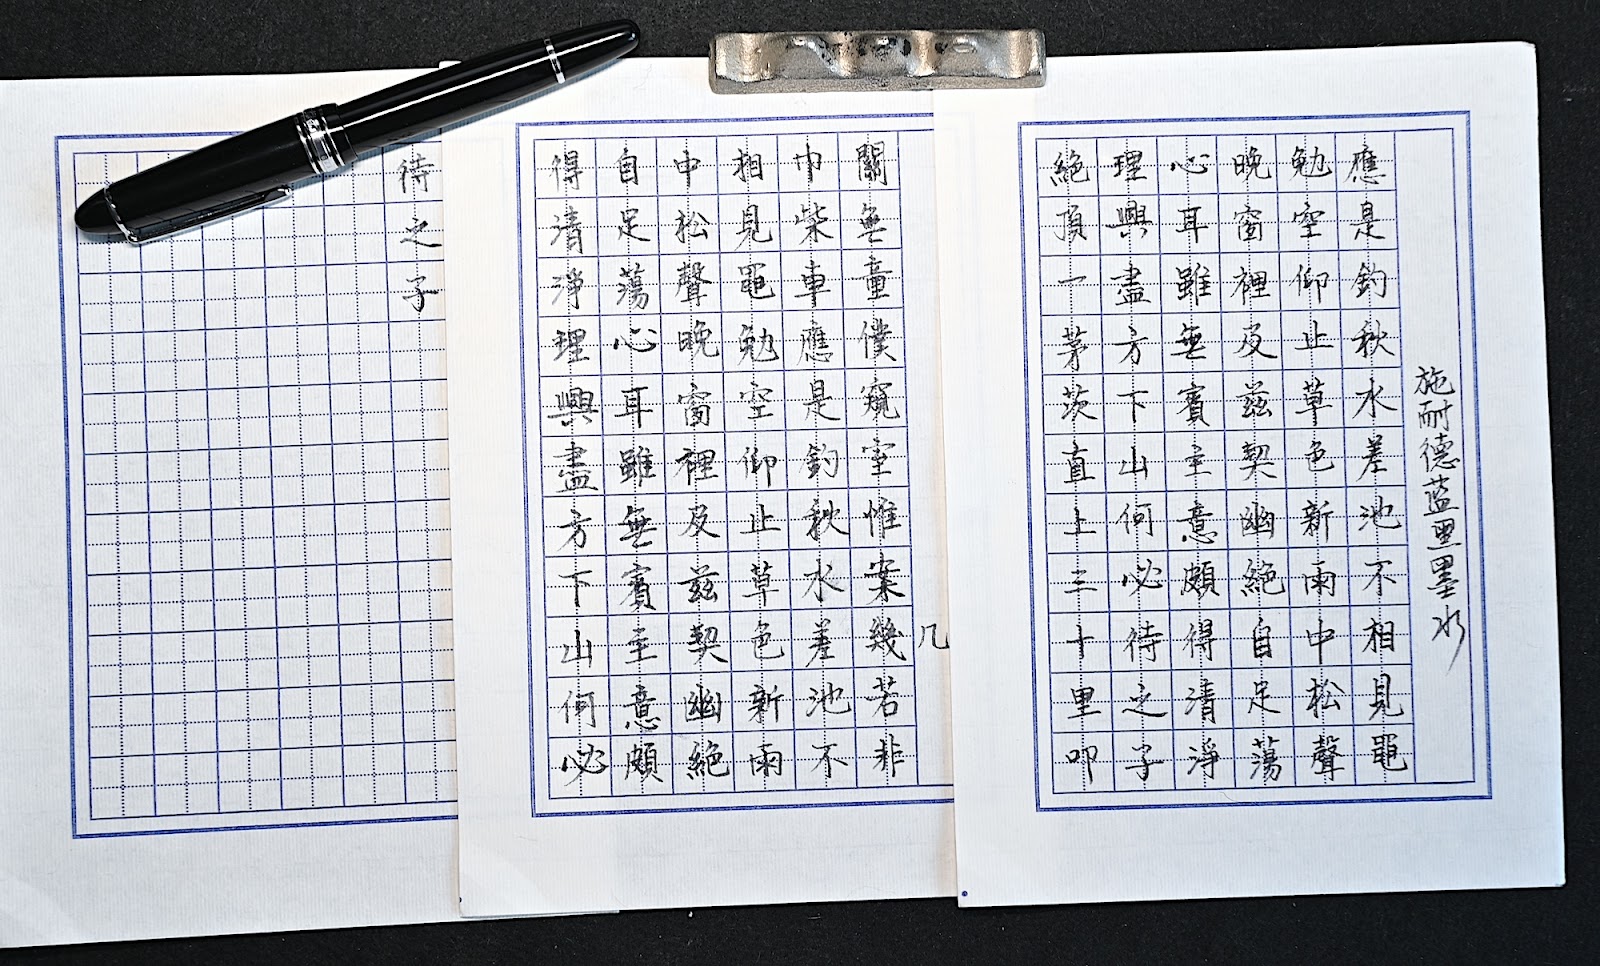 施耐德蓝黑墨水
應是釣秋水差池不相見黽
勉空仰止草色新雨中松聲
晚窗裡及茲契幽絕自足蕩
心耳雖無賓主意頗得清淨
理興盡方下山何必待之子
絕頂一茅茨直上三十里叩
几
關無童僕窺室惟案幾若非
巾柴車應是釣秋水差池不
相見黽勉空仰止草色新雨
中松聲晚窗裡及茲契幽絕
自足蕩心耳雖無賓主意頗
得清淨理興盡方下山何必
待之子